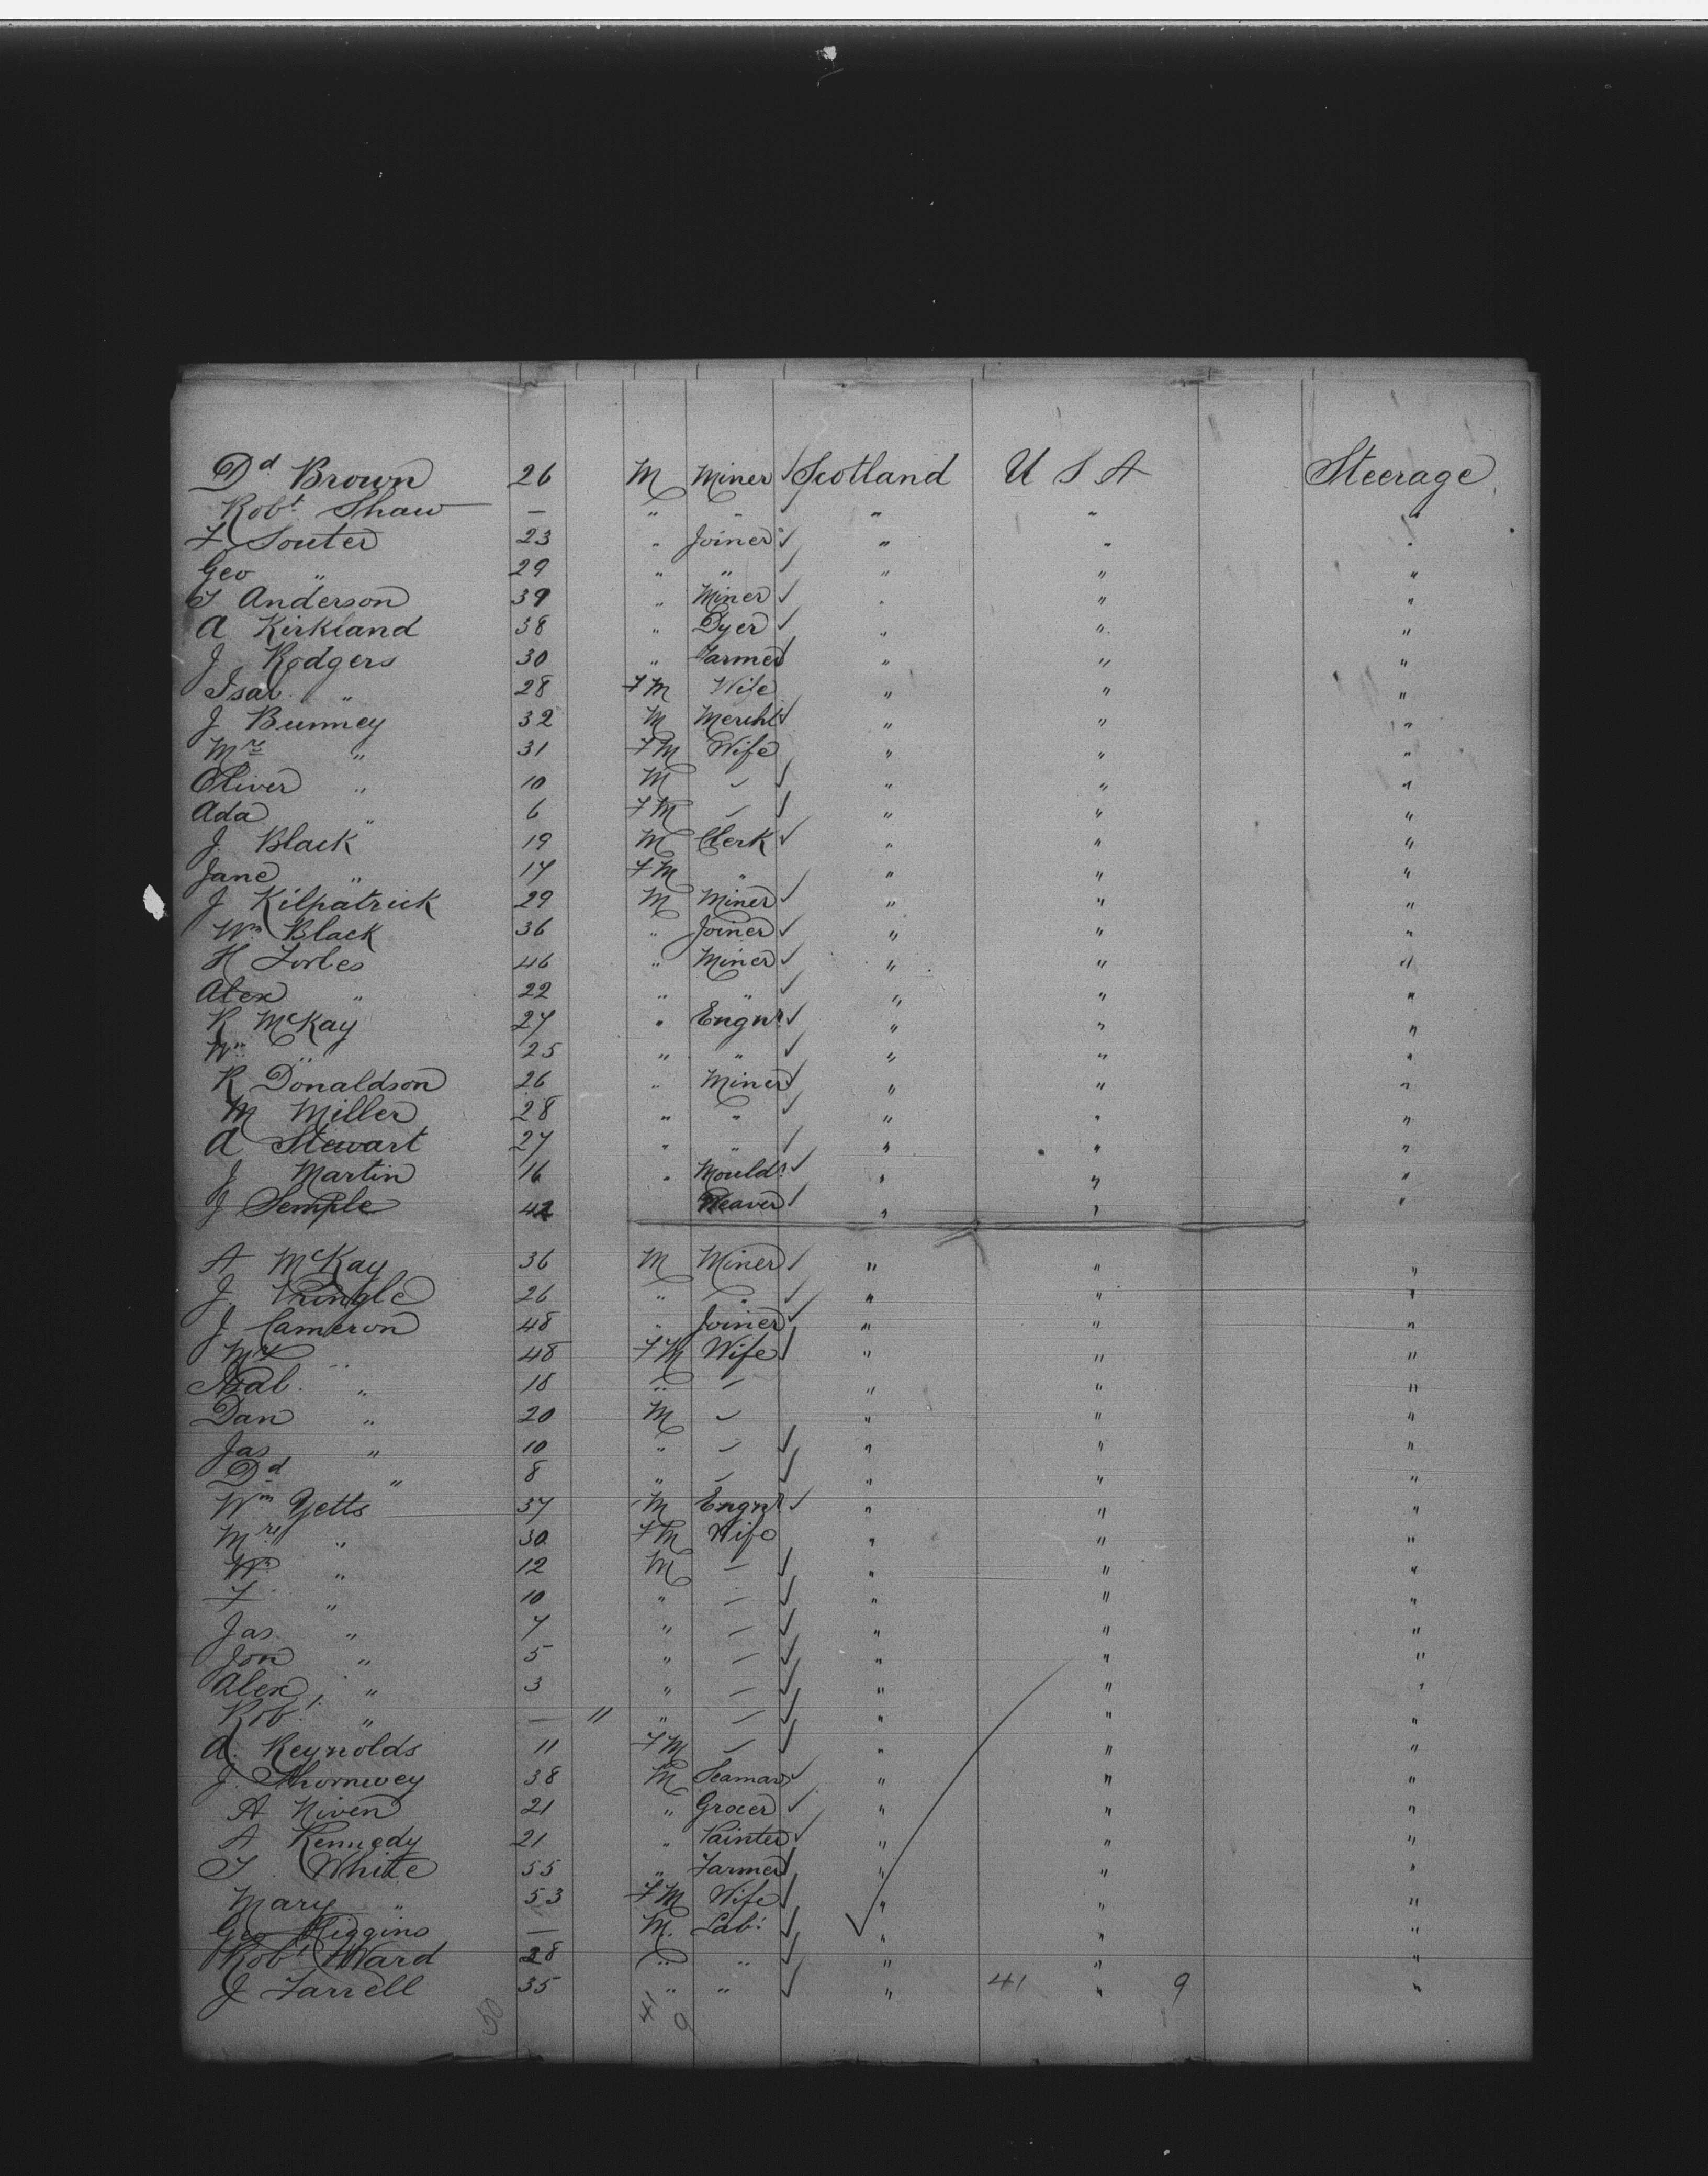 Dd Brown 26 M Miner ✓ Scotland U S A Steerage
Robt Shaw — " " ✓ " " "
F Souter 23 " Joiner ✓ " " "
Geo " 29 " " ✓ " " "
T Anderson 39 " Miner ✓ " " "
A Kirkland 38 " Dyer ✓ " " "
J Rodgers 30 " Farmer ✓ " " "
Isab. " 28 FM Wife " " "
J Bunney 32 M Mercht ✓ " " "
Mrs " 31 FM Wife " " "
Oliver " 10 M — ✓ " " "
Ada " 6 FM — ✓ " " "
J. Black 19 M Clerk ✓ " " "
Jane " 17 FM " " " "
J Kilpatrick 29 M Miner ✓ " " "
Wm Black 36 " Joiner ✓ " " "
H Forbes 46 " Miner ✓ " " "
Alex " 22 " " ✓ " " "
R McKay 27 " Engnr ✓ " " "
Wm " 25 " " ✓ " " "
R Donaldson 26 " Miner ✓ " " "
M Miller 28 " " ✓ " " "
A Stewart 27 " " ✓ " " "
J Martin 16 " Mouldr ✓ " " "
J Semple Weaver ✓ " " "
A McKay 36 M Miner ✓ " " "
J. Pringle 26 " " ✓ " " "
J Cameron 48 " Joiner ✓ " " "
" 48 FM Wife ✓ " " "
Isab. " 18 " — " " "
Dan " 20 M — " " "
Jas " 10 " — ✓ " " "
Dd " 8 " — ✓ " " "
Wm Yetts 37 M Engnr ✓ " " "
Mrs " 30 FM Wife " " "
Wm " 12 M — ✓ " " "
F " 10 " — ✓ " " "
Jas. " 7 " — ✓ " " "
Jon " 5 " — ✓ " " "
Alex " 3 " — ✓ " " "
Robt " — " " — ✓ " " "
A. Reynolds 11 FM — ✓ " " "
J. 38 M Seaman ✓ " " "
A Niven 21 " Grocer ✓ " " "
A Kennedy 21 " Painter ✓ " " "
T. White 55 " Farmer ✓ " " "
Mary " 53 FM Wife ✓ " " "
Geo Higgins — M. Lab: ✓ ✓ " " "
Robt Ward 28 " " ✓ " " "
J Farrell 35 " " ✓ " 41 " 9 "
50 41 9